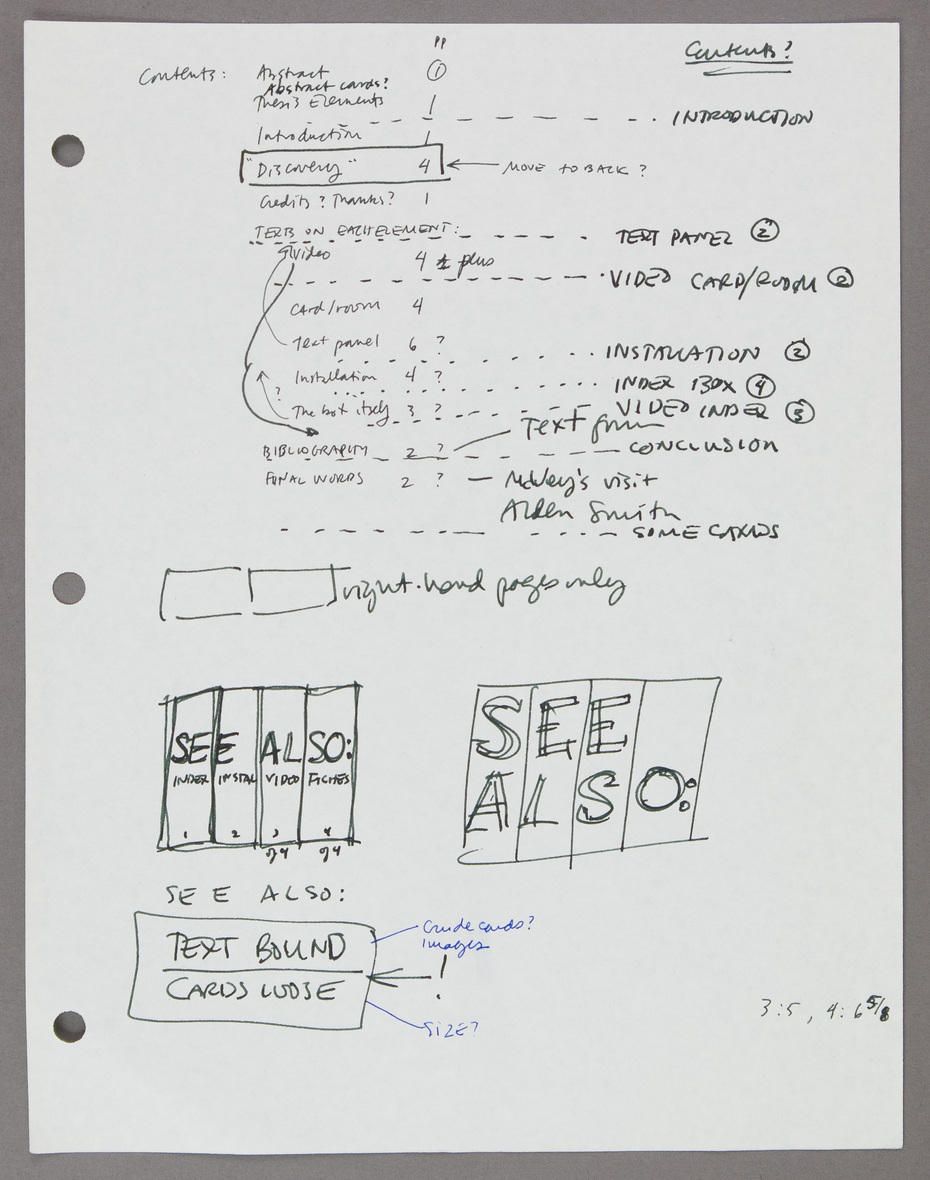 pp
Contents?
Contents: Abstract 1
Abstract cards?
Thesis Elements 1
INTRODUCTION
Introduction 1
"Discovery" 4 MOVE TO BACK?
Credits? Thanks? 1
TEXTS ON EACH ELEMENT:
TEXT PANEL 2
Video 4 plus
VIDEO CARD/ROOM 2
Card/room 4
Text panel 6 ?
INSTALLATION 2
Installation 4 ?
INDEX BOX 4
?
The box itself 3 ?
VIDEO INDEX 3
Text from
BIBLIOGRAPHY 2 ?
CONCLUSION
FINAL WORDS 2 ? — visit
Alden Smith
SOME CARDS
right-hand pages only
SEE ALSO:
INDEX INSTAL VIDEO FICHES
1 2 3 4
of 4 of 4
SEE
ALSO:
SEE ALSO:
TEXT BOUND
CARDS LOOSE
Crude cards?
Images
!
SIZE?
3:5, 4:6 5/8